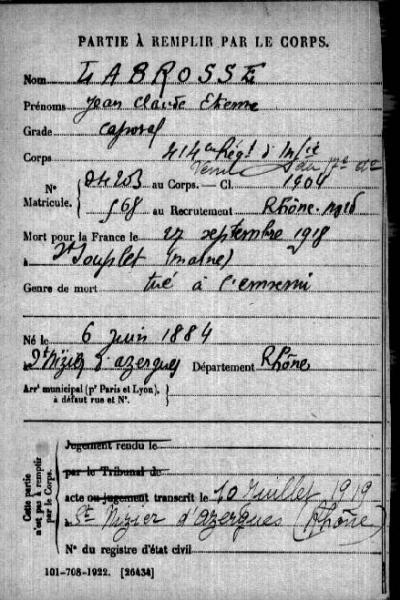 PARTIE À REMPLIR PAR LE CORPS.
Nom LABROSSE
Prénoms Jean Claude Etienne
Grade Caporal
Corps 414e Régt d'Infie
N° 04203 au Corps. — Cl. 1904
Matricule. 568 au Recrutement Rhône-
Mort pour la France le 27 septembre 1918
à St Souplet (Marne)
Genre de mort tué à l'ennemi
Né le 6 juin 1884
à St Nizier d'azergues Département Rhône
Arrt municipal (pr Paris et Lyon), à défaut rue et N°.
Cette partie n'est pas à remplir par le Corps.
Jugement rendu le
par le Tribunal de
acte ou jugement transcrit le 10 Juillet 1919
à St Nizier d'Azergues (Rhône)
N° du registre d'état civil
101-708-1922. [26434]